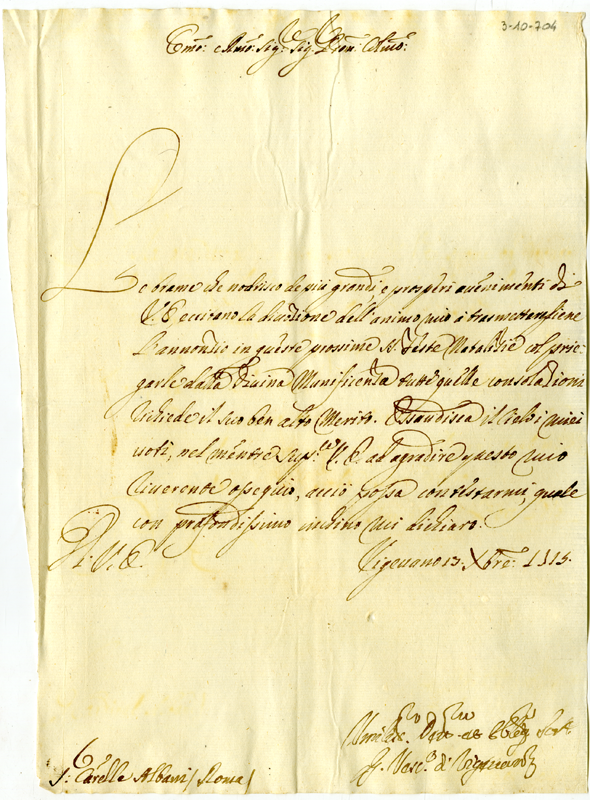 3-10-704
Emo: e Rmo: Sig: Sig: Pron: Colmo:
Le brame che nodrisco de più grandi, e prosperi avenimenti di
V. E. eccitano la divozione dell'animo mio à trasmettergliene
l'annonzio in queste prossime Ste Feste Natalizie col prie-
garle dalla Divina Munificenza tutte quelle consolazioni
richiede il suo ben alto Merito. Essaudisca il Cielo i miei
voti, nel mentre supco. V. E. ad agradire questo mio
riverente ossequio, acciò possa contestarmi, quale
con profondissimo inchino mi dichiaro.
Di V. E.
Vigevano 13. Xbre: 1715.
Umilis. Devo et Obligo Serre
G. Vesco. di Vigevano
S: Cardle Albani / Roma /